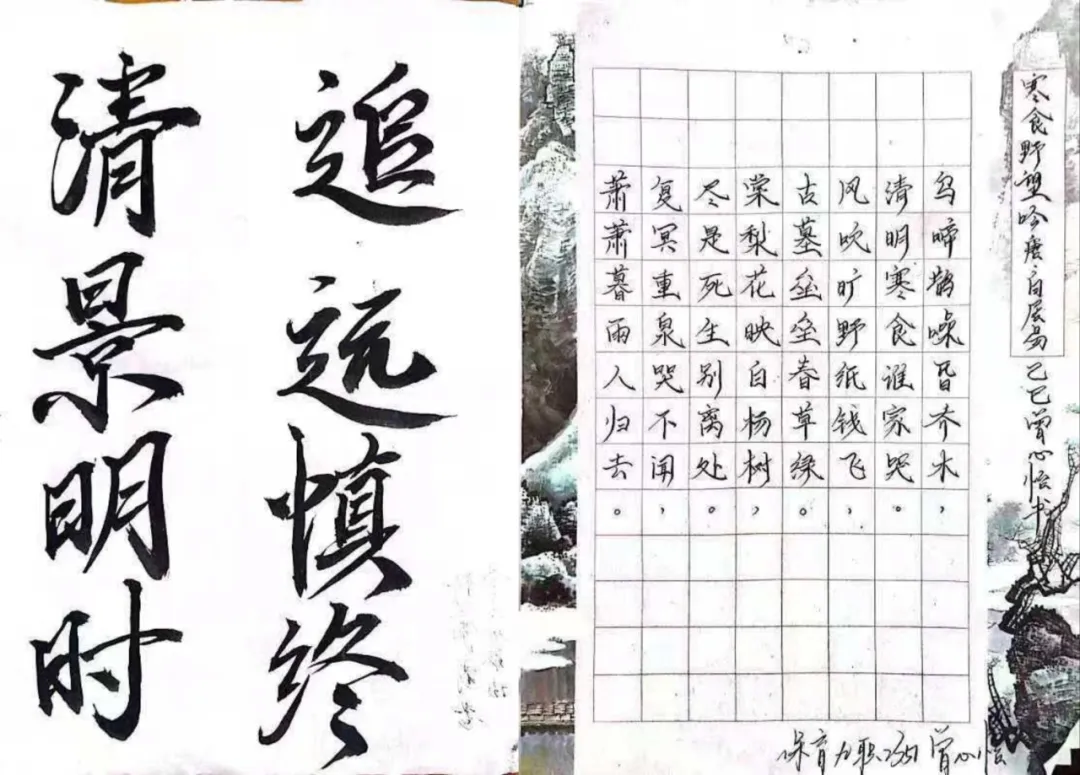 追远慎终
清景明时
寒食野望吟唐白居易 曾心怡书
乌啼鹊噪昏乔木，
清明寒食谁家哭。
风吹旷野纸钱飞，
古墓垒垒春草绿。
棠梨花映白杨树，
尽是死生别离处。
复冥重泉哭不闻，
萧萧暮雨人归去。
保育 曾心怡